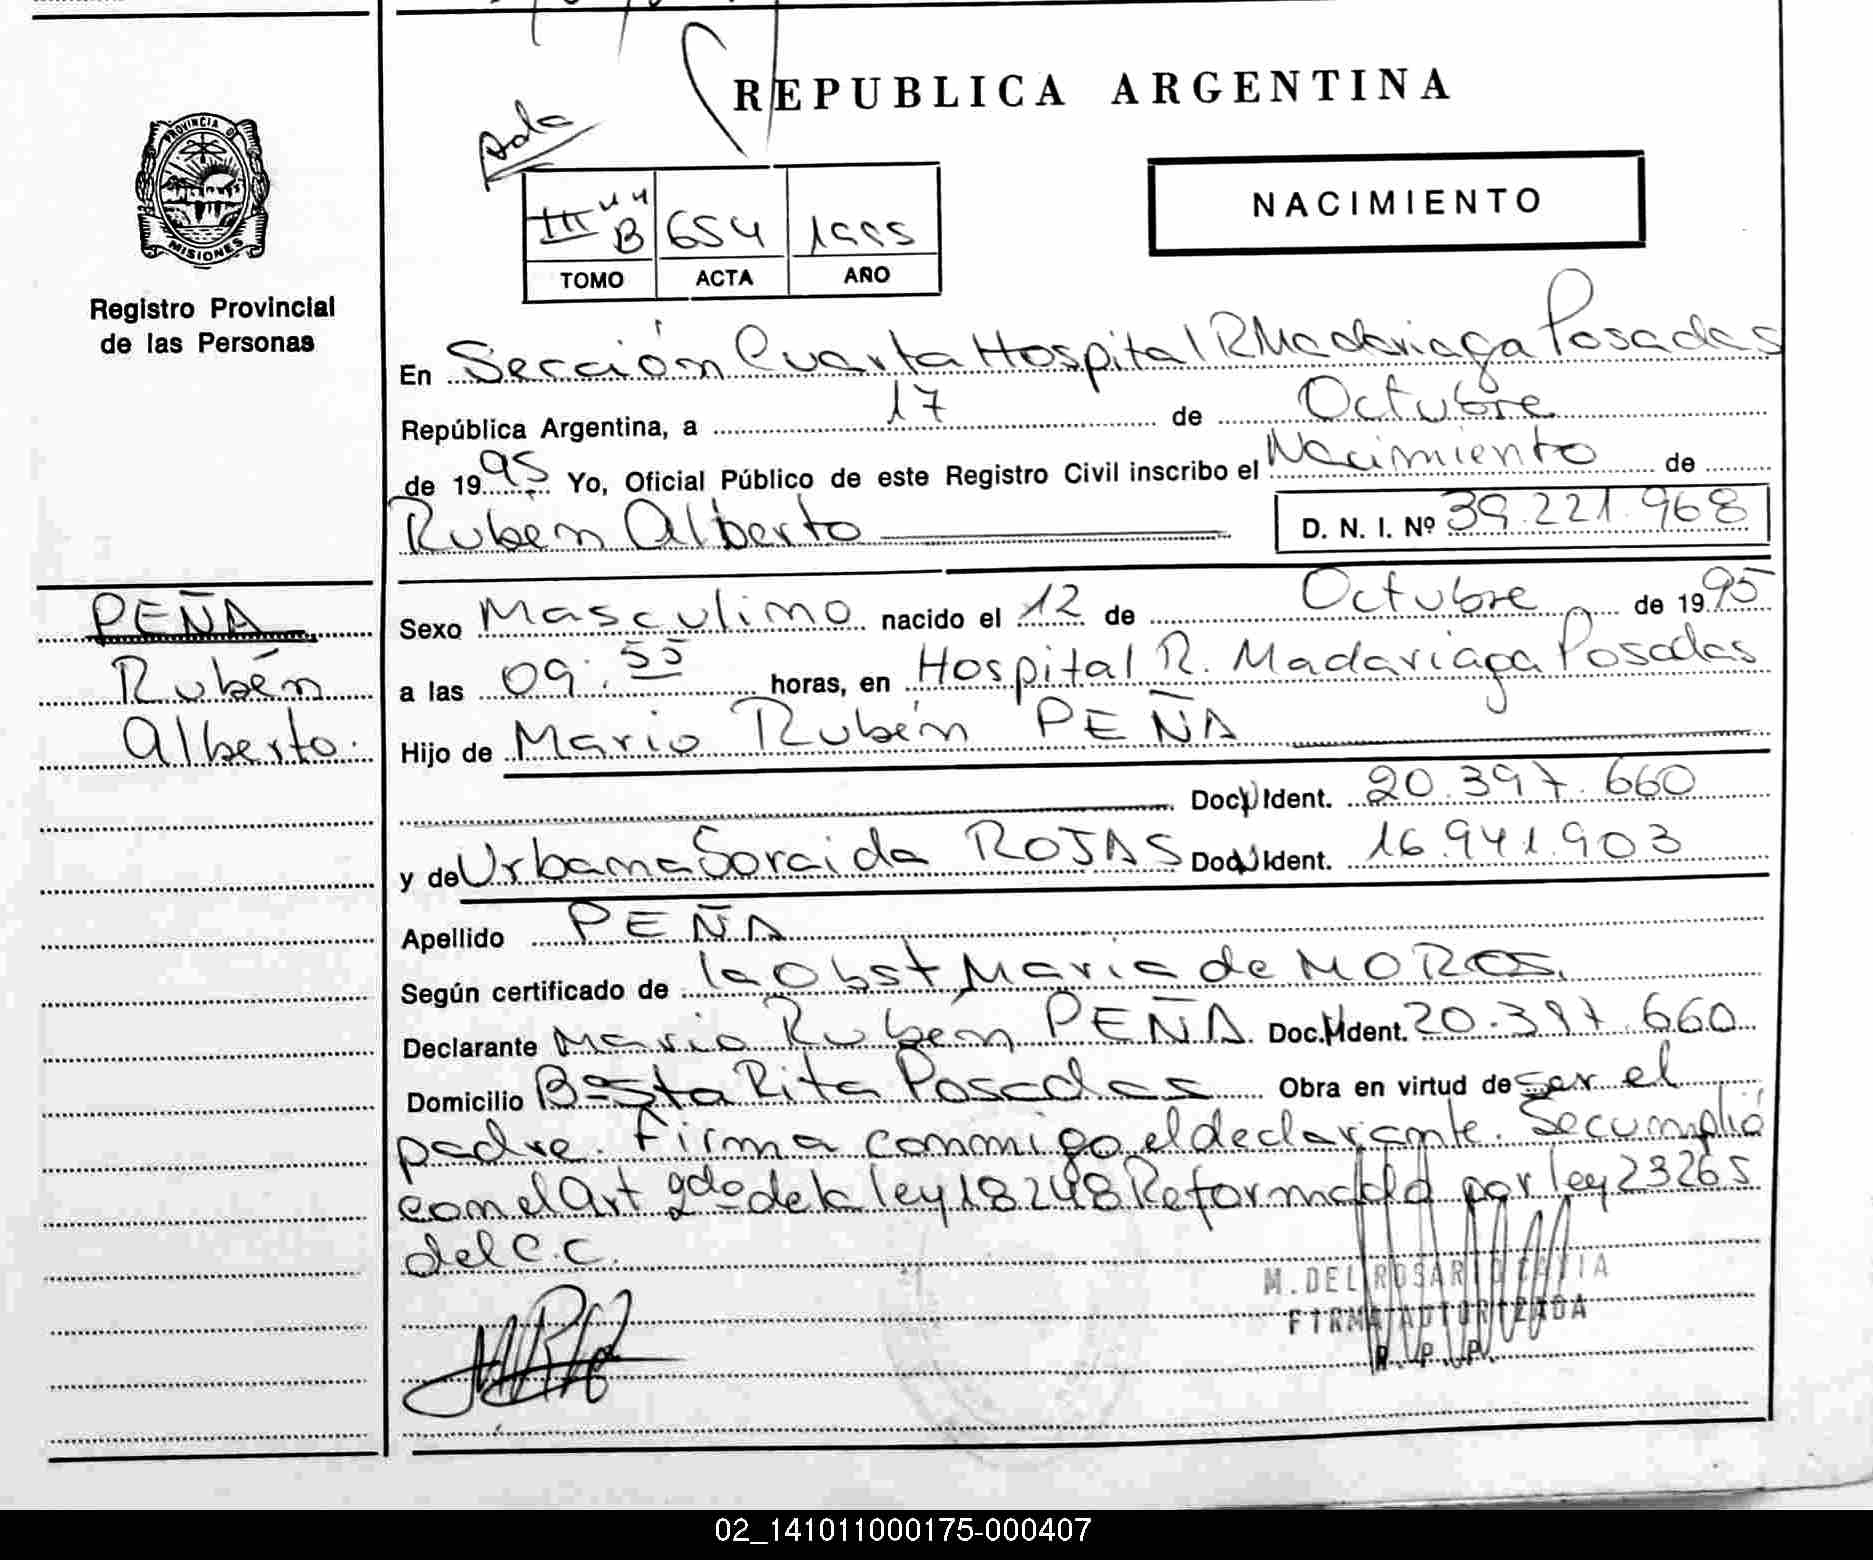 REPUBLICA ARGENTINA
Ada
PROVINCIA D
MISIONES
Registro Provincial
de las Personas
III "B" 654 1995
TOMO ACTA AÑO
NACIMIENTO
En Sección Cuarta Hospital R Madariaga Posadas
República Argentina, a 17 de Octubre
de 1995 Yo, Oficial Público de este Registro Civil inscribo el Nacimiento de
Ruben Alberto D. N. I. Nº 39.221.968
PEÑA
Rubén
Alberto.
Sexo Masculino nacido el 12 de Octubre de 1995
a las 09:55 horas, en Hospital R. Madariaga Posadas
Hijo de Mario Rubén PEÑA
Doc. Ident. 20.397.660
y de Urbana Soraida ROJAS Doc. Ident. 16.941.903
Apellido PEÑA
Según certificado de la Obst Maria de MOROS.
Declarante Mario Rubén PEÑA Doc. Ident. 20.397.660
Domicilio Bº Sta Rita Posadas Obra en virtud de ser el
padre. Firma conmigo el declarante. Se cumplió
con el Art 2do de la ley 18248 Reformada por ley 23265
del C.C.
M. DEL ROSARIO
FIRMA AUTORIZADA
R. P. P.
02_141011000175-000407